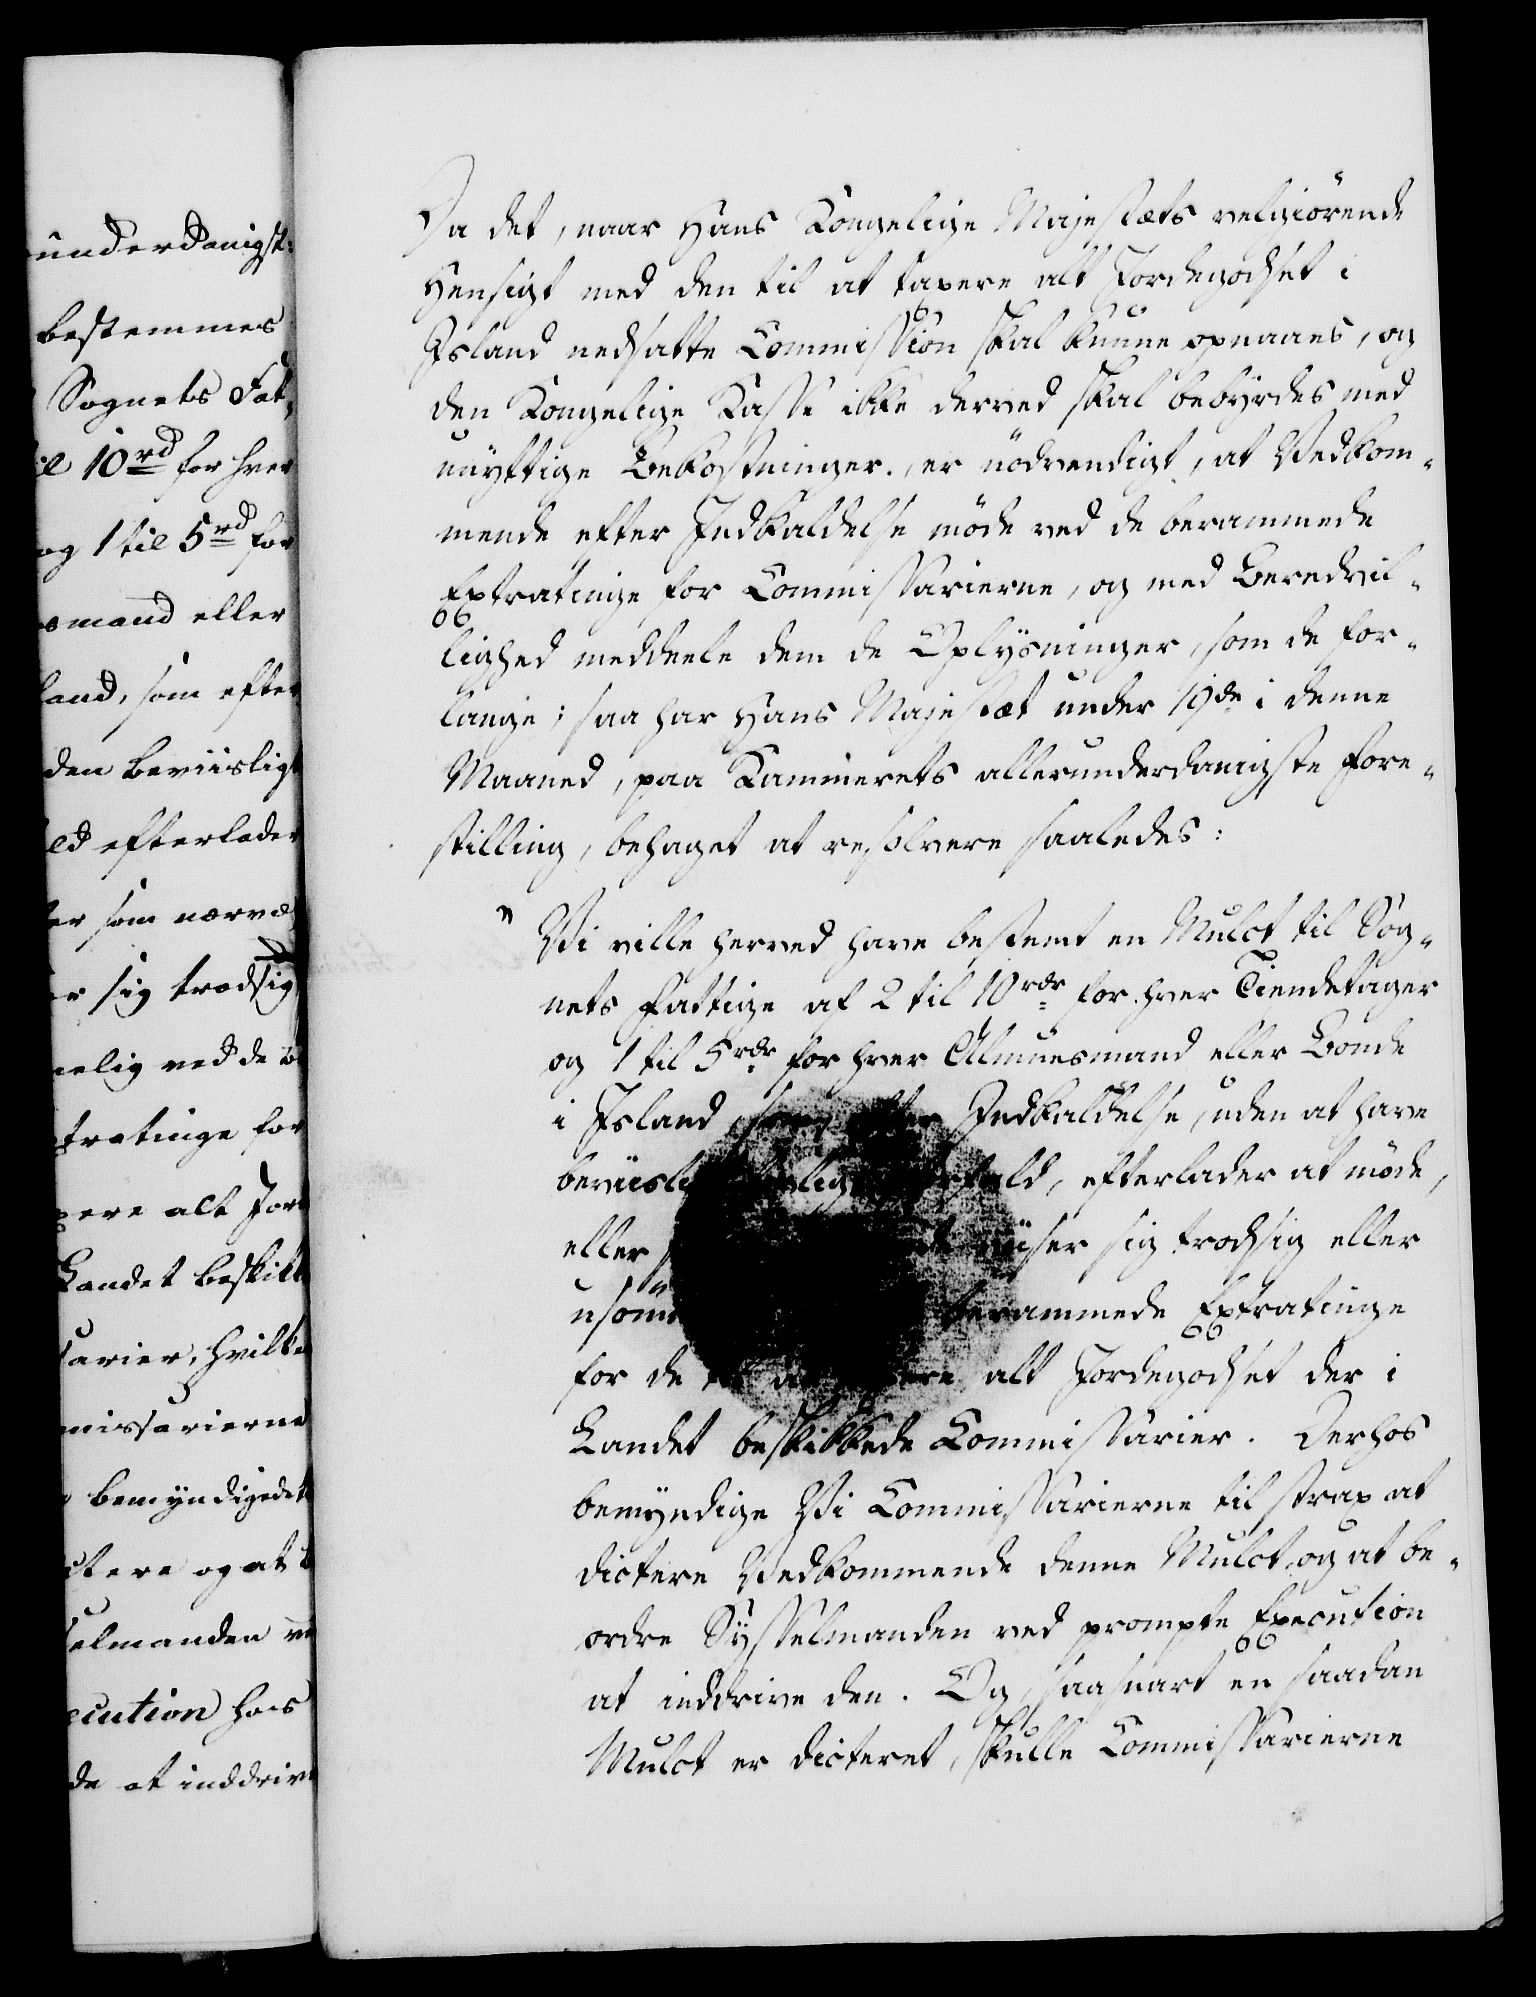 underdanigst:
bestemmes
Sognets Fat,
10rd for hver
og 1 til 5rd for
smand eller
land, som efter
den beviisligt
ld efterlader
er som nærvæ
er sig trodsig
melig ved de b
tratinge for
ere alt Jor
Landet beskik
sarier, hvilke
missarierne
bemyndigede
ctere og at b
selmanden v
ecution hos
de at inddrive
Da det, naar Hans Kongelige Majestæts velgiörende
Hensigt med den til at taxere alt Jordegodset i
Island nedsatte Commission skal kunne opnaaes, og
den Kongelige Kasse ikke derved skal bebyrdes med
unyttige Bekostninger, er nödvendigt, at Vedkom-
mende efter Indkaldelse möde ved de berammede
Extratinge for Commissarierne, og med Beredvil-
lighed meddeele dem de Oplysninger, som de for-
lange; saa har Hans Majestæt under 19de i denne
Maaned, paa Kammerets allerunderdanigste Fore-
stilling, behaget at resolvere saaledes:
" Vi ville herved have bestemt en Mulct til Sog-
nets Fattige af 2 til 10rdr for hver Tiendetager
og 1 til 5rdr for hver Almuesmand eller Bonde
i Island, som efter Indkaldelse, uden at have
beviislig lovligt Forfald, efterlader at möde,
eller viiser sig trodsig eller
usöm berammede Extratinge
for de til at taxere alt Jordegodset der i
Landet beskikkede Commissarier. Derhos
bemyndige Vi Commissarierne til strax at
dictere Vedkommende denne Mulct, og at be-
ordre Sysselmanden ved prompte Execution
at inddrive den. Og, saasnart en saadan
Mulct er dicteret, skulle Commissarierne